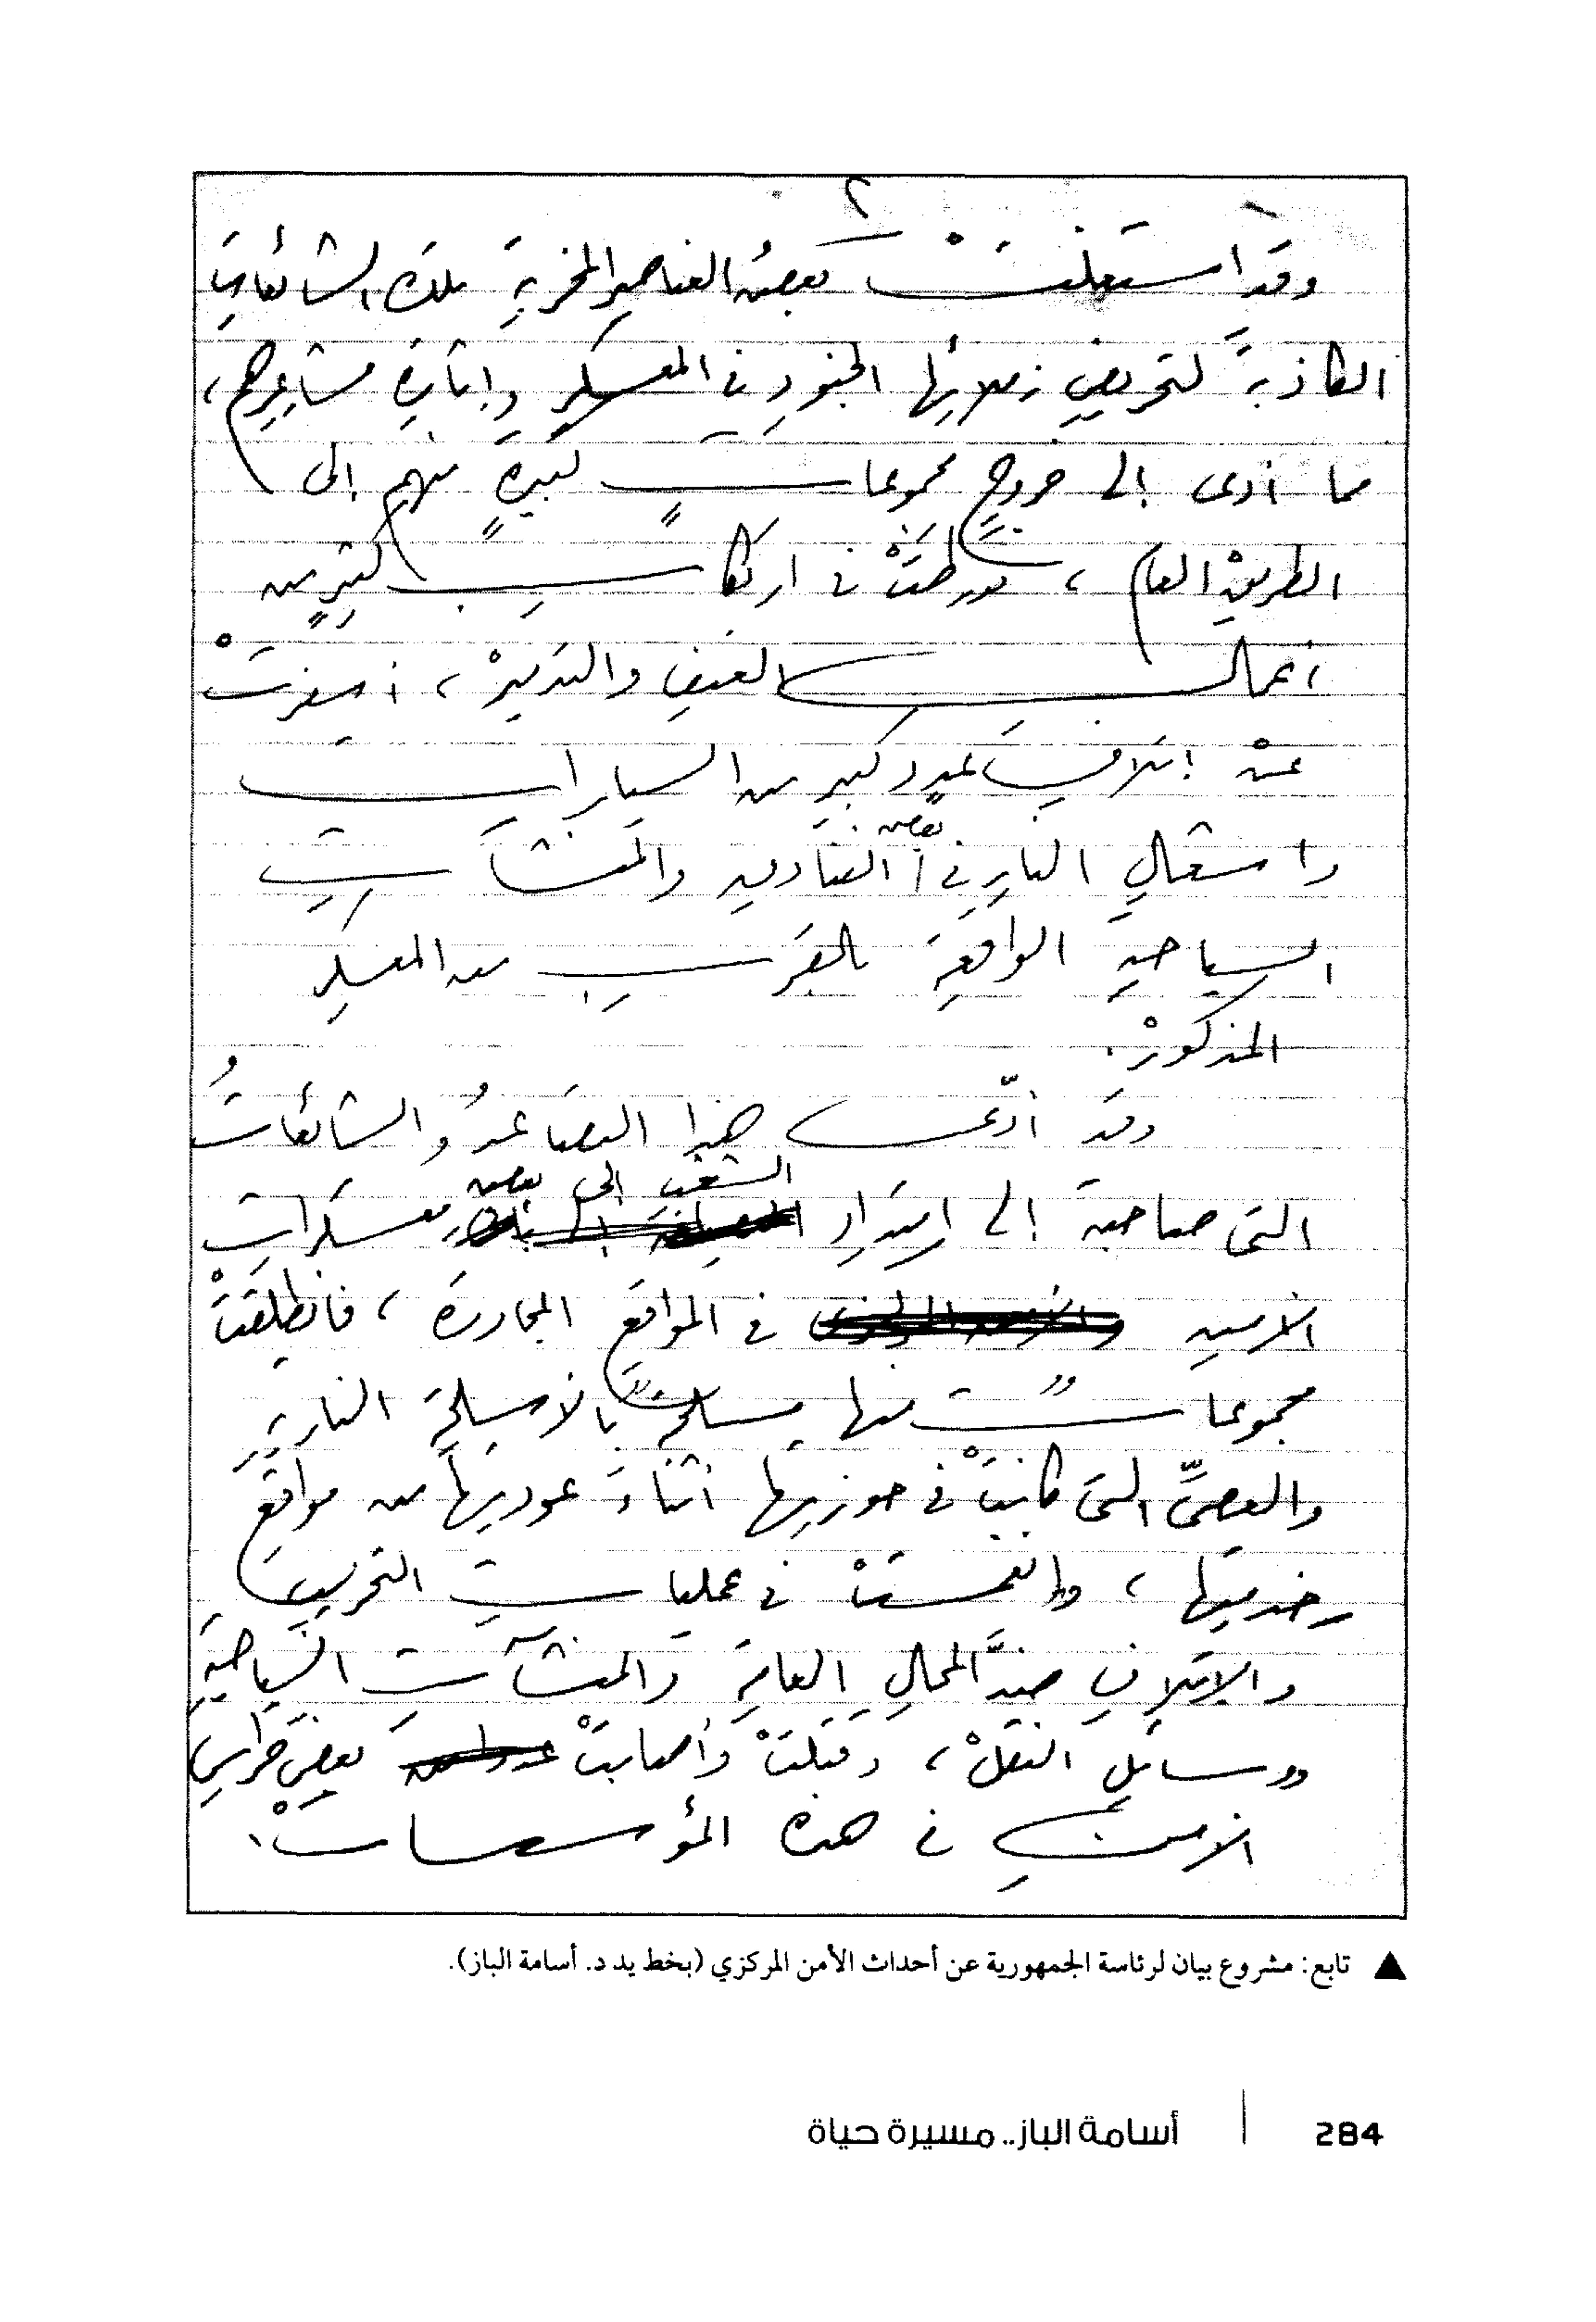 ٢
وقد استغلتْ بعضُ العناصرِ المخربةِ تلكَ الشائعاتِ
الكاذبةَ لتحريضِ زملائِها الجنودِ في المعسكرِ وإثارةِ مشاعرِهم،
مما أدى إلى خروجِ مجموعاتٍ كبيرةٍ منهم إلى
الطريقِ العام، تورطتْ في ارتكابِ كثيرٍ من
أعمالِ العنفِ والتدميرْ، أسفرتْ
عنْ إتلافِ عددٍ كبيرٍ من السياراتِ
واشتعالِ النارِ في بعض الفنادقِ والمنشآتِ
السياحيةِ الواقعةِ بالقربِ من المعسكرِ
المذكورْ.
وقد أدّى هذا التصاعدُ والشائعاتُ
التى صاحبته إلى امتدادِ الشغبِ إلى بعض معسكراتِ
الأمنِ في المواقعِ المجاورة، فانطلقتْ
مجموعاتٌ منها مسلحةٌ بالأسلحةِ الناريةِ
والعصىِّ التى كانتْ في حوزتِها أثناءَ عودتِها من مواقعِ
خدمتِها، وانغمستْ في عملياتِ التخريبِ
والإتلافِ ضدَّ المحالِ العامةِ والمنشآتِ السياحيةِ
ووسائلِ النقلْ، وقتلتْ وأصابتْ بعضَ حراسِ
الأمنِ في هذه المؤسساتْ.
▲ تابع: مشروع بيان لرئاسة الجمهورية عن أحداث الأمن المركزي (بخط يد د. أسامة الباز).
284 | أسامة الباز.. مسيرة حياة